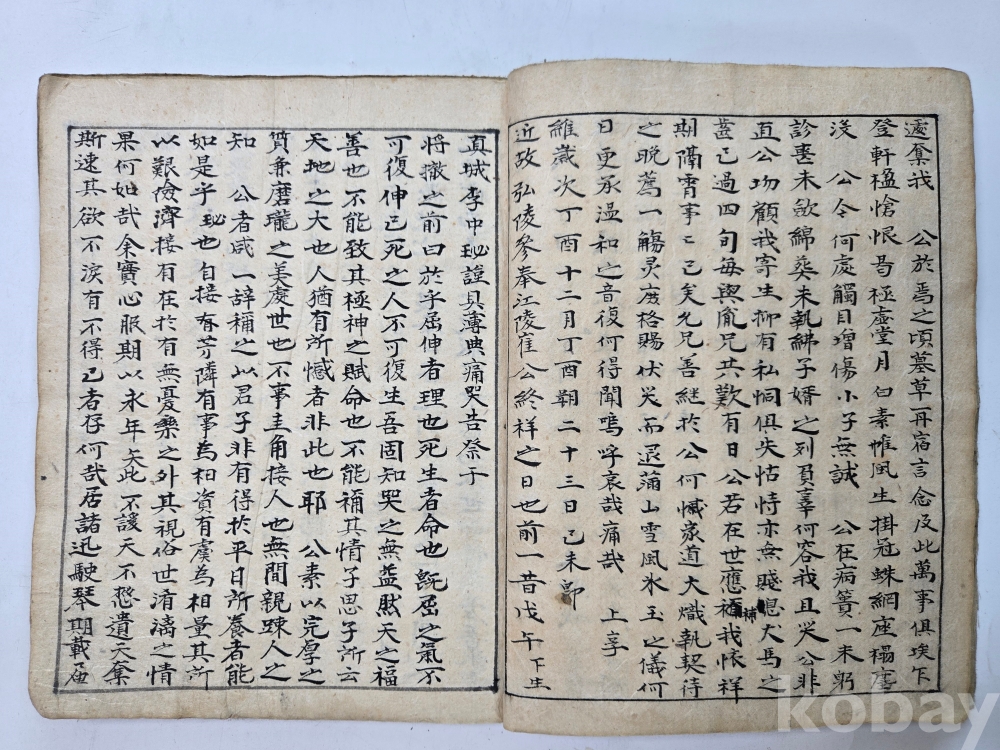 遽奪我 公於焉之頃墓草再宿言念及此萬事俱埃下
登軒楹愴恨曷極虛堂月白素帷風生掛冠蛛網座榻塵
淺 公今何處觸目增傷小子無誠 公在病簀一未躬
診喪未斂綿葬未執紼子婿之列負辜何容我且哭公非
直公切顧我寄生抑有私恫俱失怙恃亦無賤息犬馬之
齒已過四旬每與胤兄共歎有日公若在世應補我悵祥
期隔宵事已已矣允兄善繼於公何憾家道大熾執契待
之晚薦一觴灵庶格賜伏哭而退蒲山雪風氷玉之儀何
日更承溫和之音復何得聞嗚呼哀哉痛哉 上享
維歲次丁酉十二月丁酉朔二十三日己未即
近故弘陵參奉江陵崔公終祥之日也前一昔戊午下生
真城李中㘽謹具薄奠痛哭告祭于
將撤之前曰於乎屈伸者理也死生者命也旣屈之氣不
可復伸已死之人不可復生吾固知哭之無益然天之福
善也不能致其極神之賦命也不能稱其情子思子所云
天地之大也人猶有所憾者非此也耶 公素以完厚之
質兼磨瓏之美處世也不事圭角接人也無間親踈人之
知 公者咸一辞稱之以君子非有得於平日所養者能
如是乎㘽也自接有芳隣有事為相資有虞為相量其所
以艱險濟接有在於有無憂樂之外其視俗世淆漓之情
果何如哉余實心服期以永年矣此不諼天不憖遺天奪
斯速其欲不淚有不得已者存何哉居諸迅駛琴期載屆